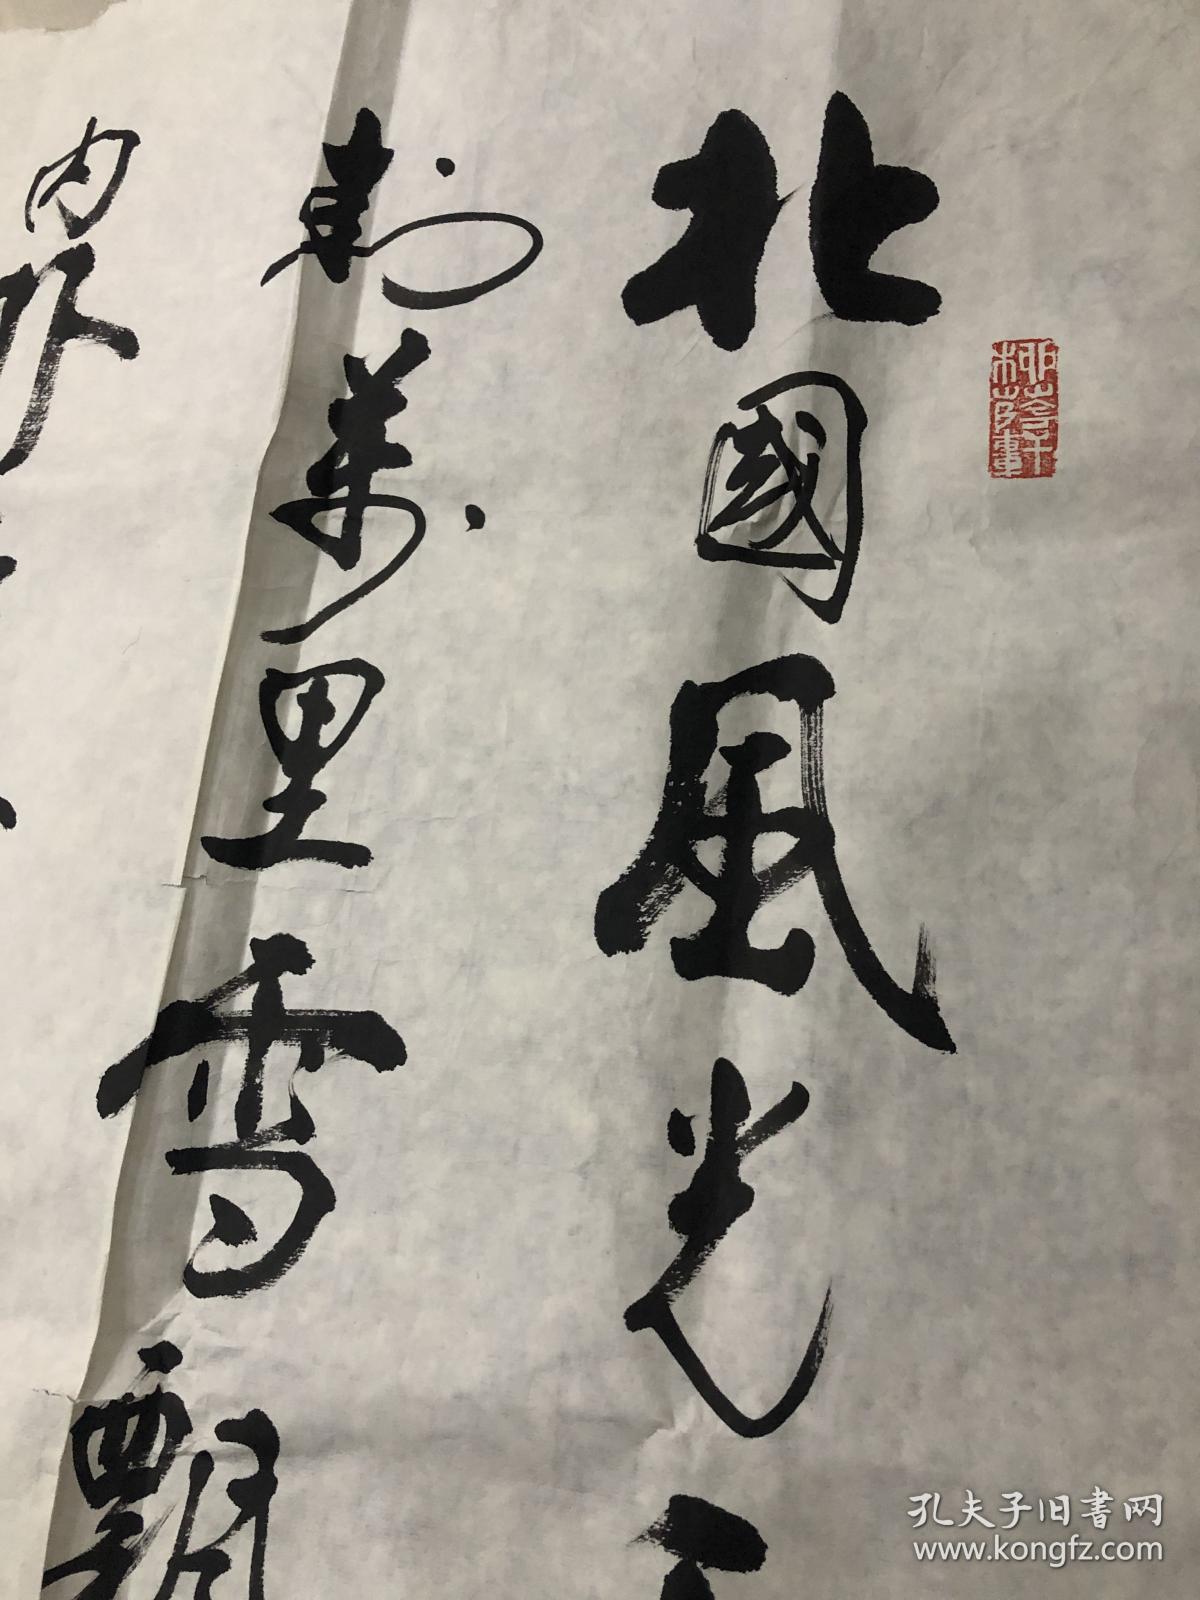 柳蔭軒
北國風光
封萬里雪飄
内外
孔夫子旧书网
www.kongfz.com